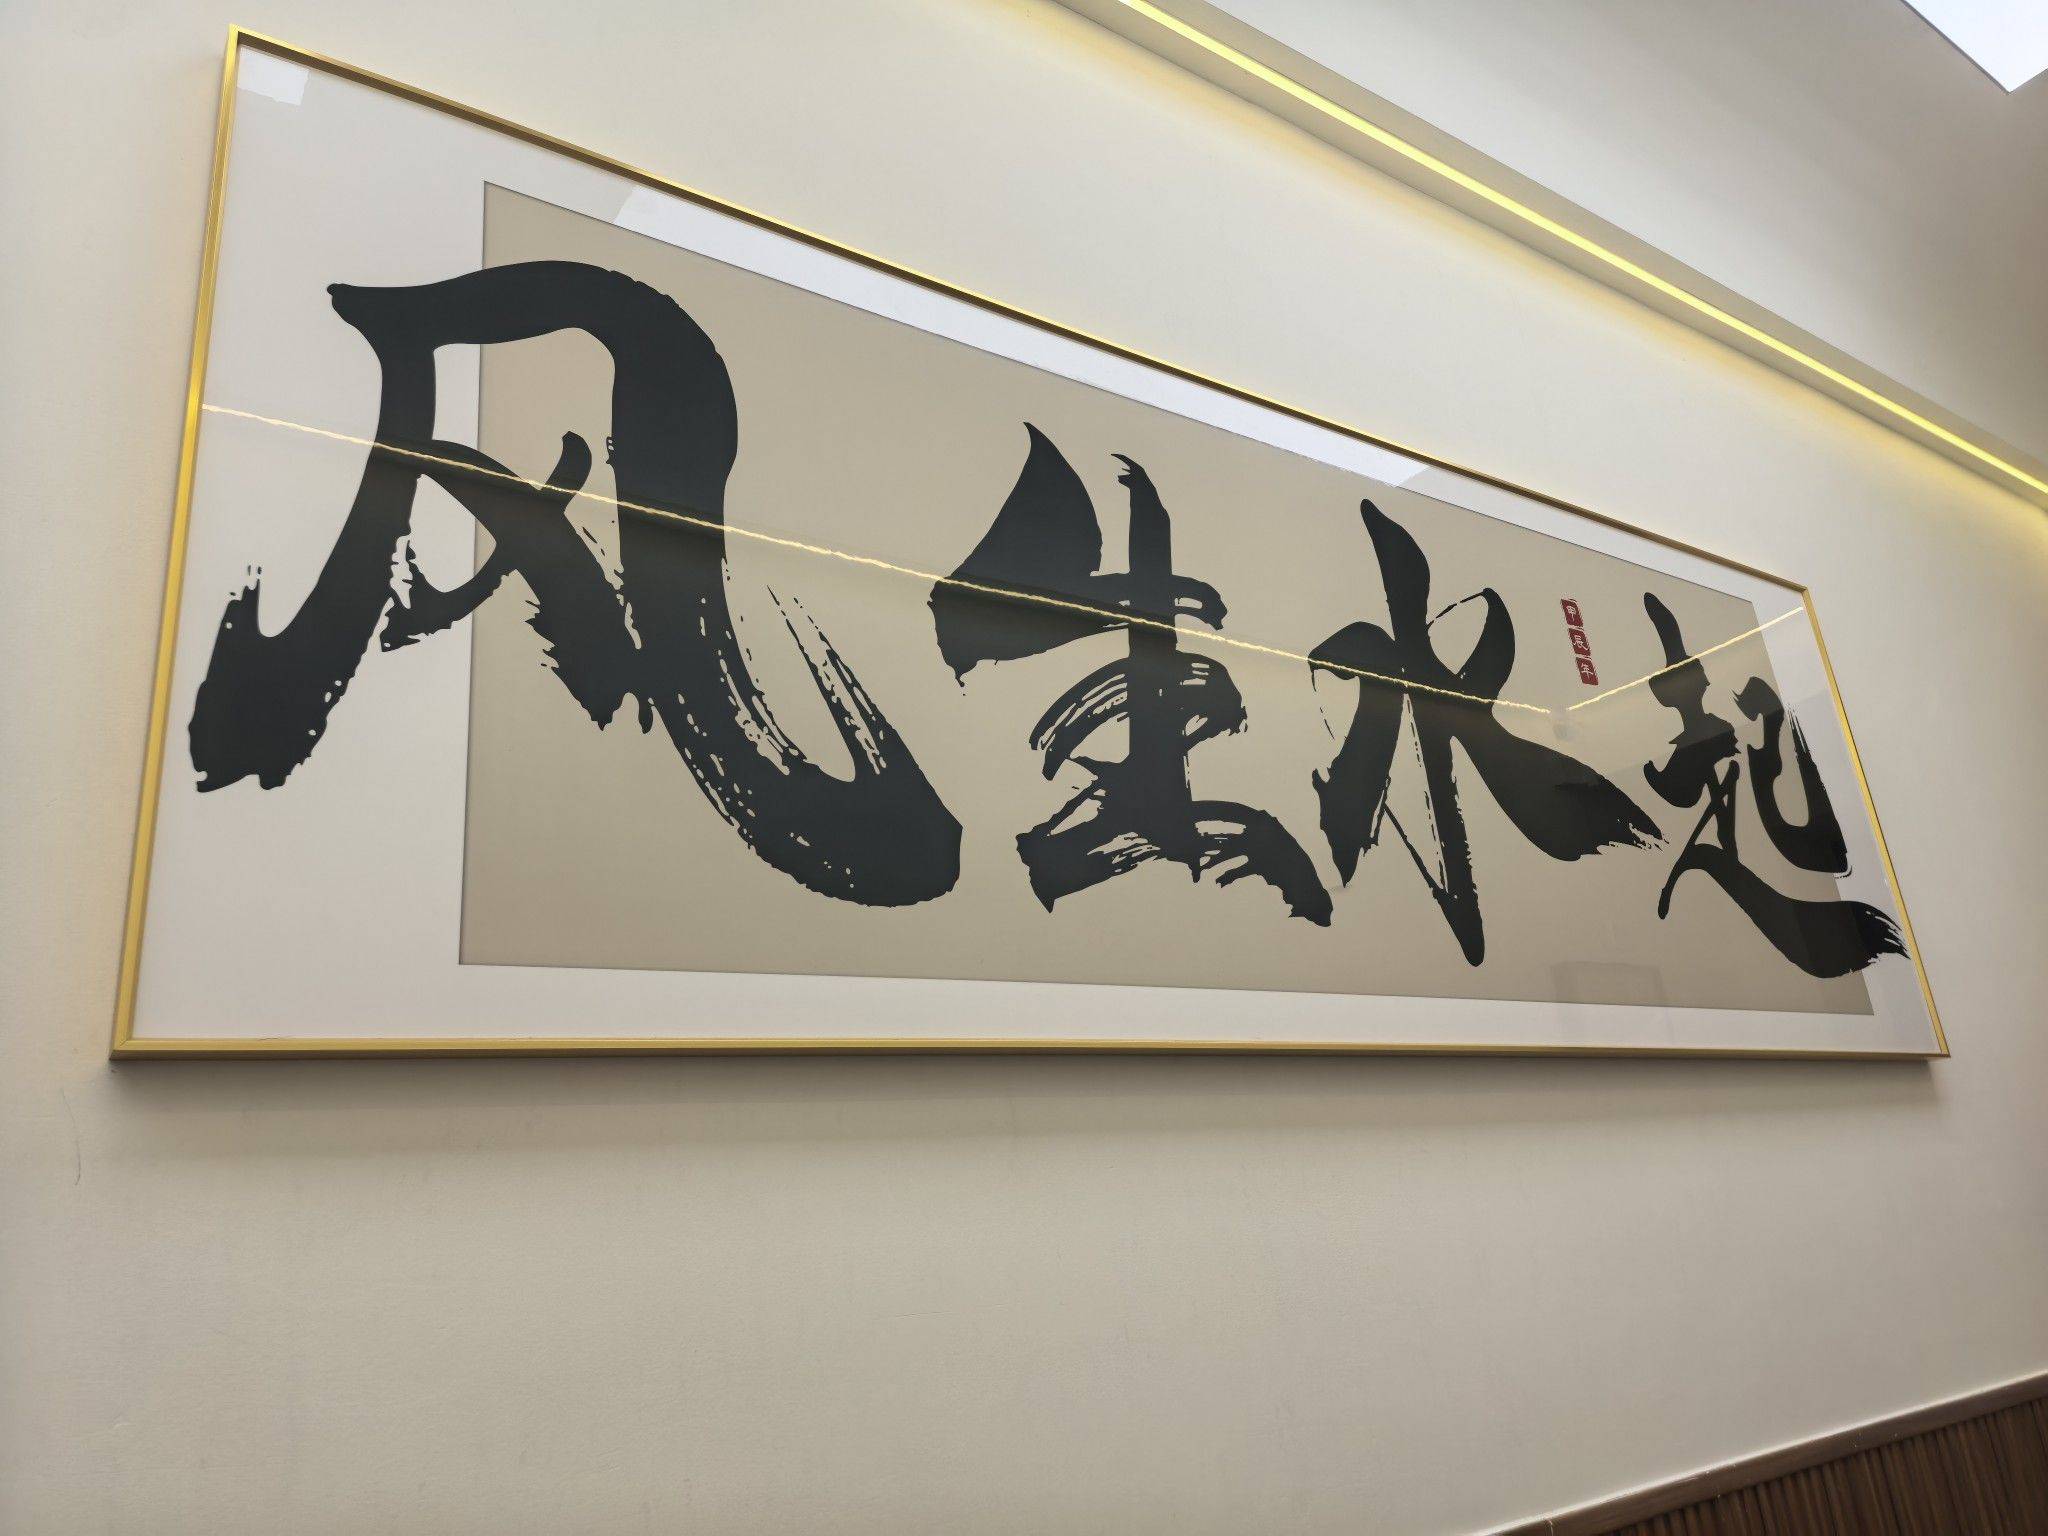 风生水起
甲辰年